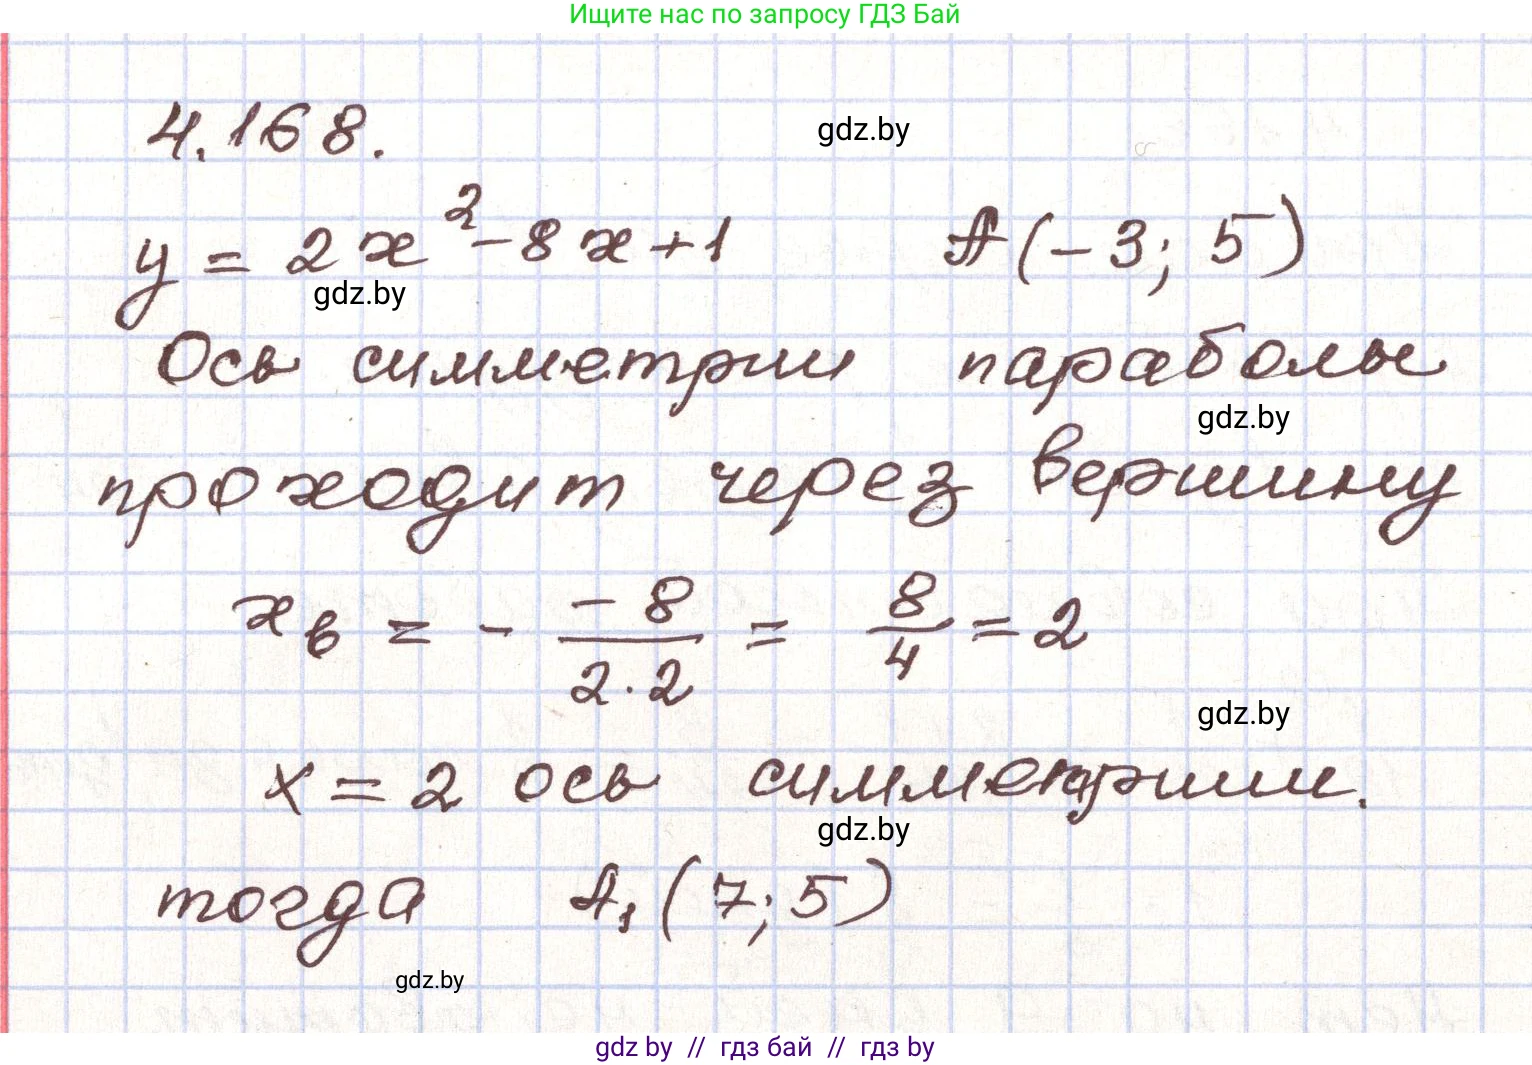 Ищите нас по запросу ГДЗ Бай
4.168.
gdz.by
y = 2x² - 8x + 1 A(-3; 5)
gdz.by
Ось симметрии параболы
gdz.by
проходит через вершину
x_в = - \frac{-8}{2·2} = \frac{8}{4} = 2
gdz.by
x = 2 ось симметрии.
gdz.by
тогда A₁(7; 5)
gdz.by
gdz by // гдз бай // гдз by